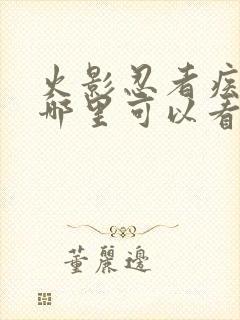 火影忍者疾
哪里可以看
董麗邊